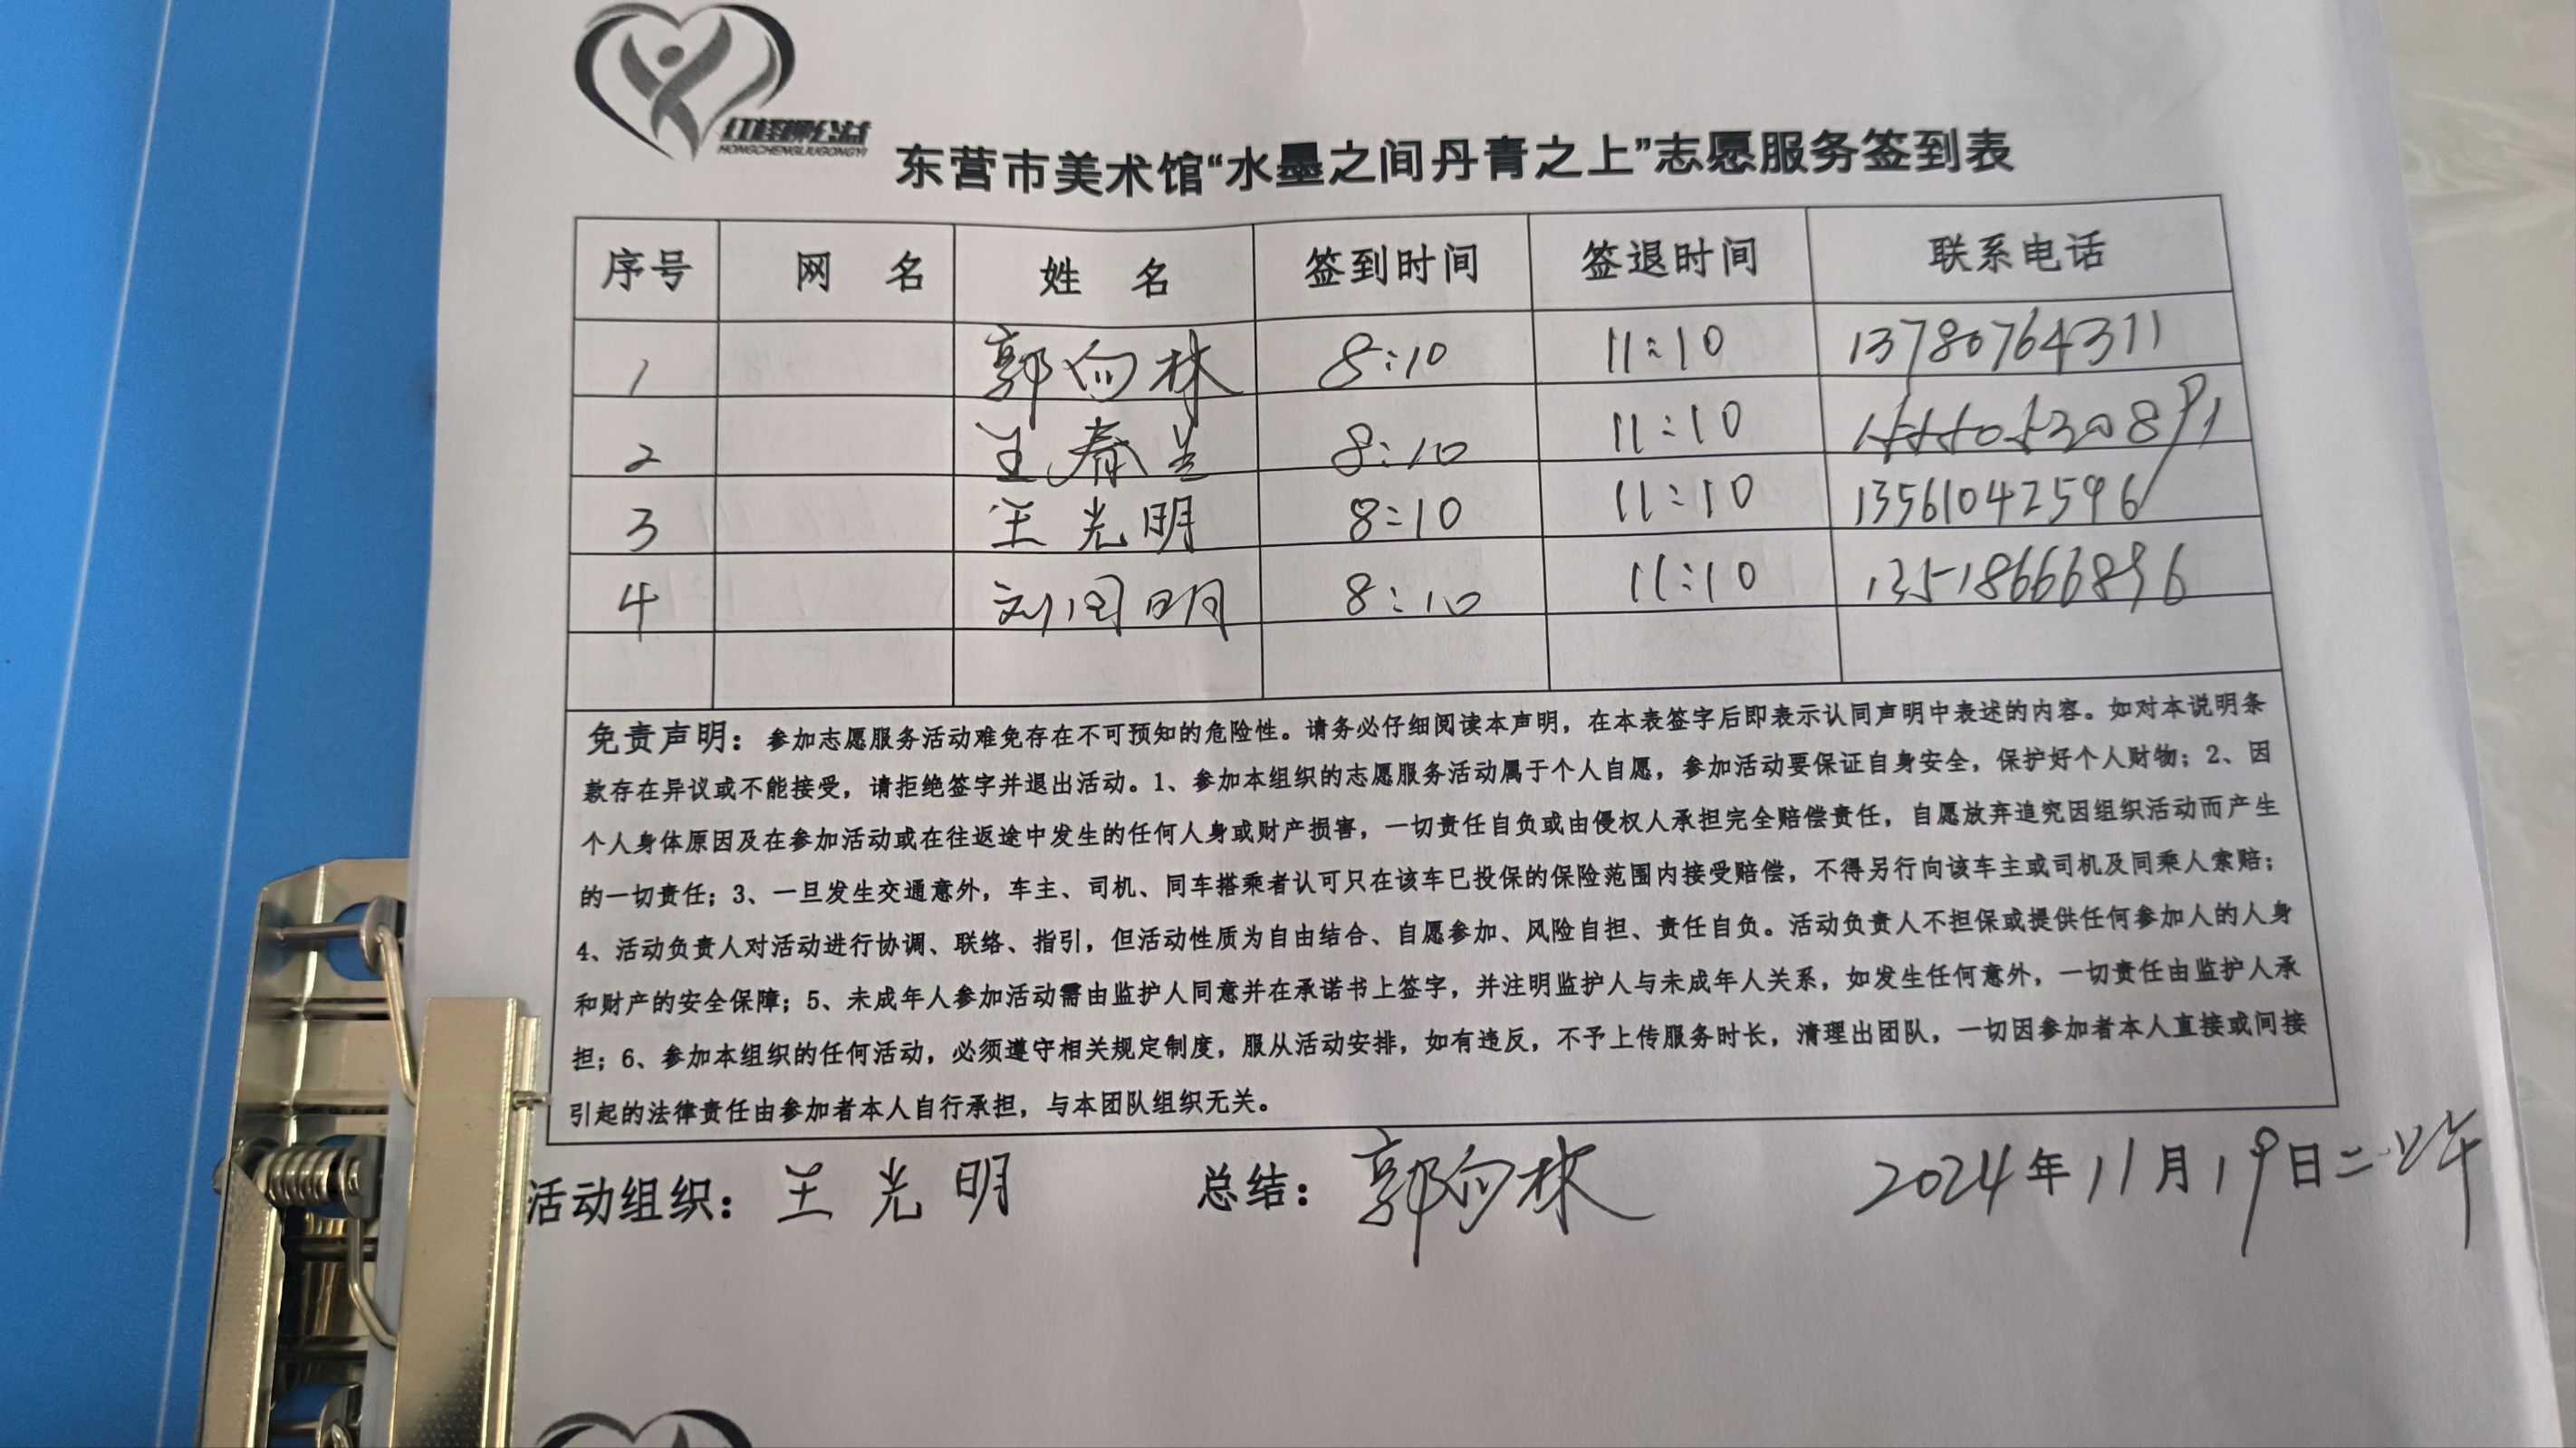 红柽柳公益
HONGCHENGLIUGONGYI
东营市美术馆“水墨之间丹青之上”志愿服务签到表
序号 网 名 姓 名 签到时间 签退时间 联系电话
1 郭向林 8:10 11:10 13780764311
2 王春兰 8:10 11:10 15550530891
3 王光明 8:10 11:10 13561042596
4 刘国明 8:10 11:10 13518666896
免责声明：参加志愿服务活动难免存在不可预知的危险性。请务必仔细阅读本声明，在本表签字后即表示认同声明中表述的内容。如对本说明条
款存在异议或不能接受，请拒绝签字并退出活动。1、参加本组织的志愿服务活动属于个人自愿，参加活动要保证自身安全，保护好个人财物；2、因
个人身体原因及在参加活动或在往返途中发生的任何人身或财产损害，一切责任自负或由侵权人承担完全赔偿责任，自愿放弃追究因组织活动而产生
的一切责任；3、一旦发生交通意外，车主、司机、同车搭乘者认可只在该车已投保的保险范围内接受赔偿，不得另行向该车主或司机及同乘人索赔；
4、活动负责人对活动进行协调、联络、指引，但活动性质为自由结合、自愿参加、风险自担、责任自负。活动负责人不担保或提供任何参加人的人身
和财产的安全保障；5、未成年人参加活动需由监护人同意并在承诺书上签字，并注明监护人与未成年人关系，如发生任何意外，一切责任由监护人承
担；6、参加本组织的任何活动，必须遵守相关规定制度，服从活动安排，如有违反，不予上传服务时长，清理出团队，一切因参加者本人直接或间接
引起的法律责任由参加者本人自行承担，与本团队组织无关。
活动组织：王光明 总结：郭向林 2024年11月19日二上午